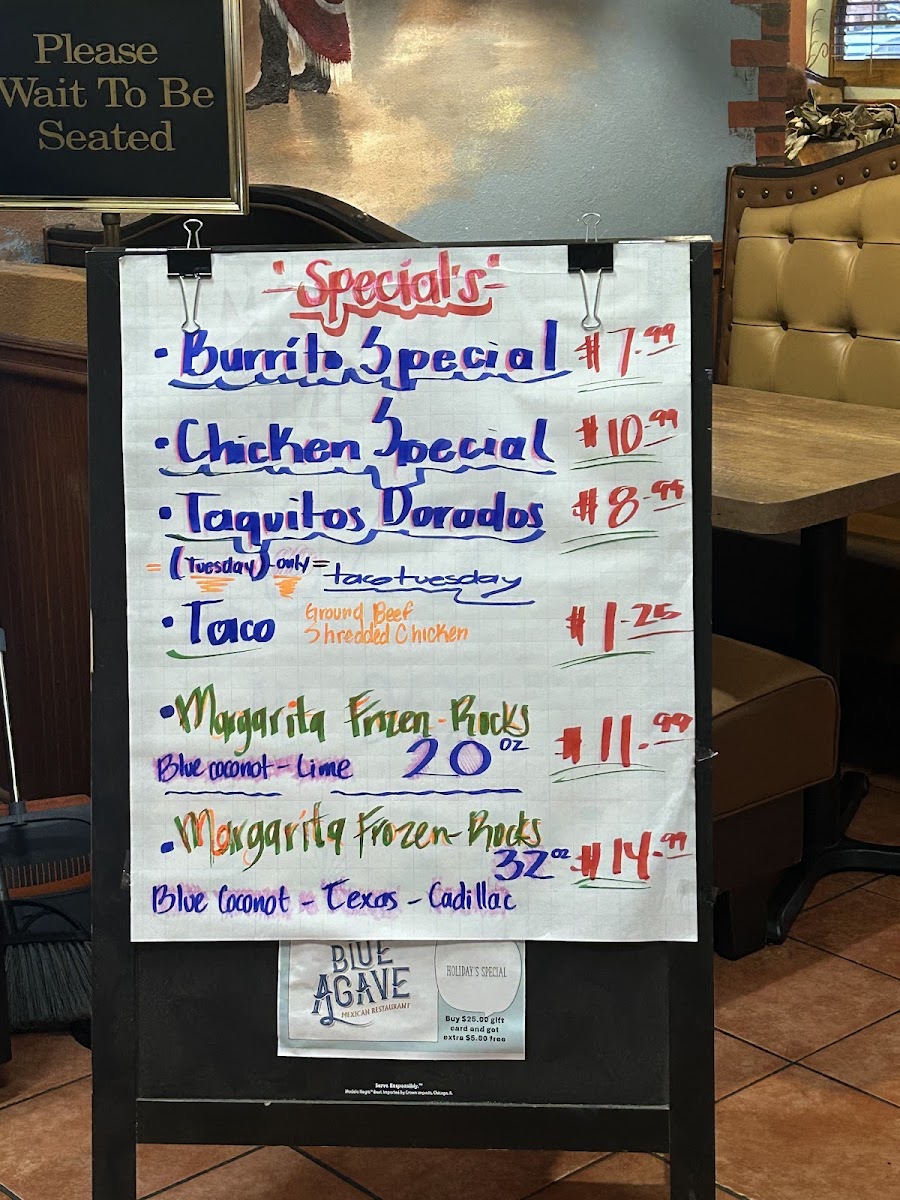 Please
Wait To Be
Seated
"Special's"
• Burrito Special $7.99
• Chicken Special $10.99
• Taquitos Dorados $8.99
= (Tuesday)-only= tacotuesday
• Taco Ground Beef $1.25
Shredded Chicken
• Margarita Frozen-Rocks $11.99
Blue coconot - Lime 20 oz
• Margarita Frozen-Rocks $14.99
32 oz
Blue Coconot - Texas - Cadillac
BLUE
AGAVE
MEXICAN RESTAURANT
HOLIDAY'S SPECIAL
Buy $25.00 gift
card and get
extra $5.00 free
Serve Responsibly.™